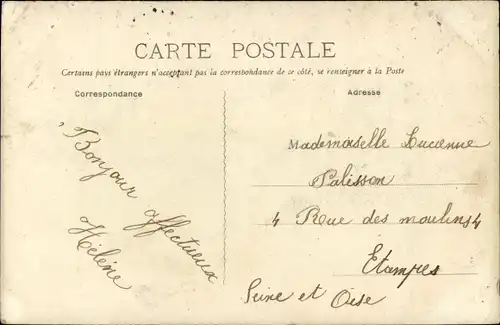 CARTE POSTALE
Certains pays étrangers n'acceptant pas la correspondance de ce côté, se renseigner à la Poste
Correspondance
Adresse
Bonjour affectueux
Hélène
Mademoiselle Lucienne
Palisson
4 Rue des moulins 4
Etampes
Seine et Oise